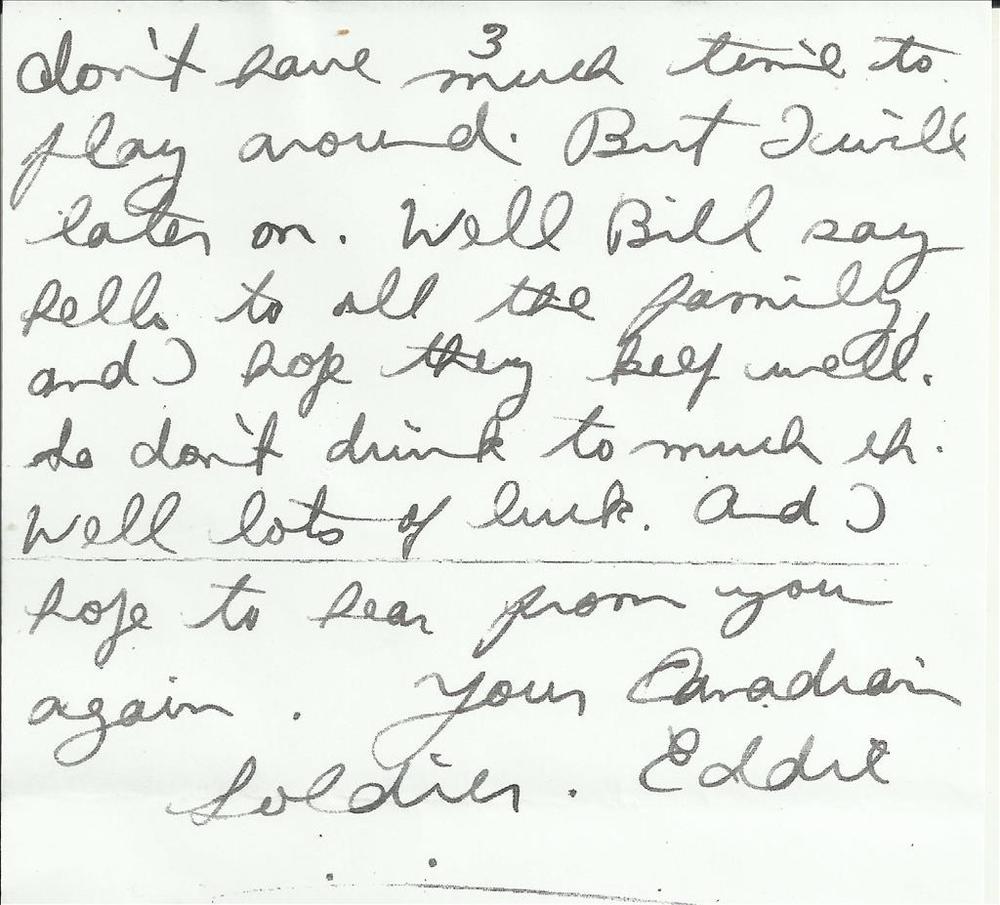 3
don't have much time to
play around. But I will
later on. Well Bill say
hello to all the family,
and I hope they keep well.
So don't drink to much eh.
Well lots of luck. And I
hope to hear from you
again. Your Canadian
Soldier. Eddie